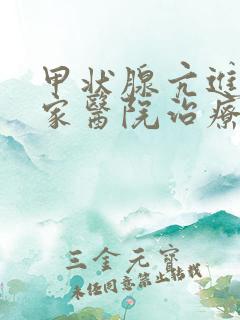 甲状腺亢進
家醫院治療
三金元寶
未经同意禁止转载